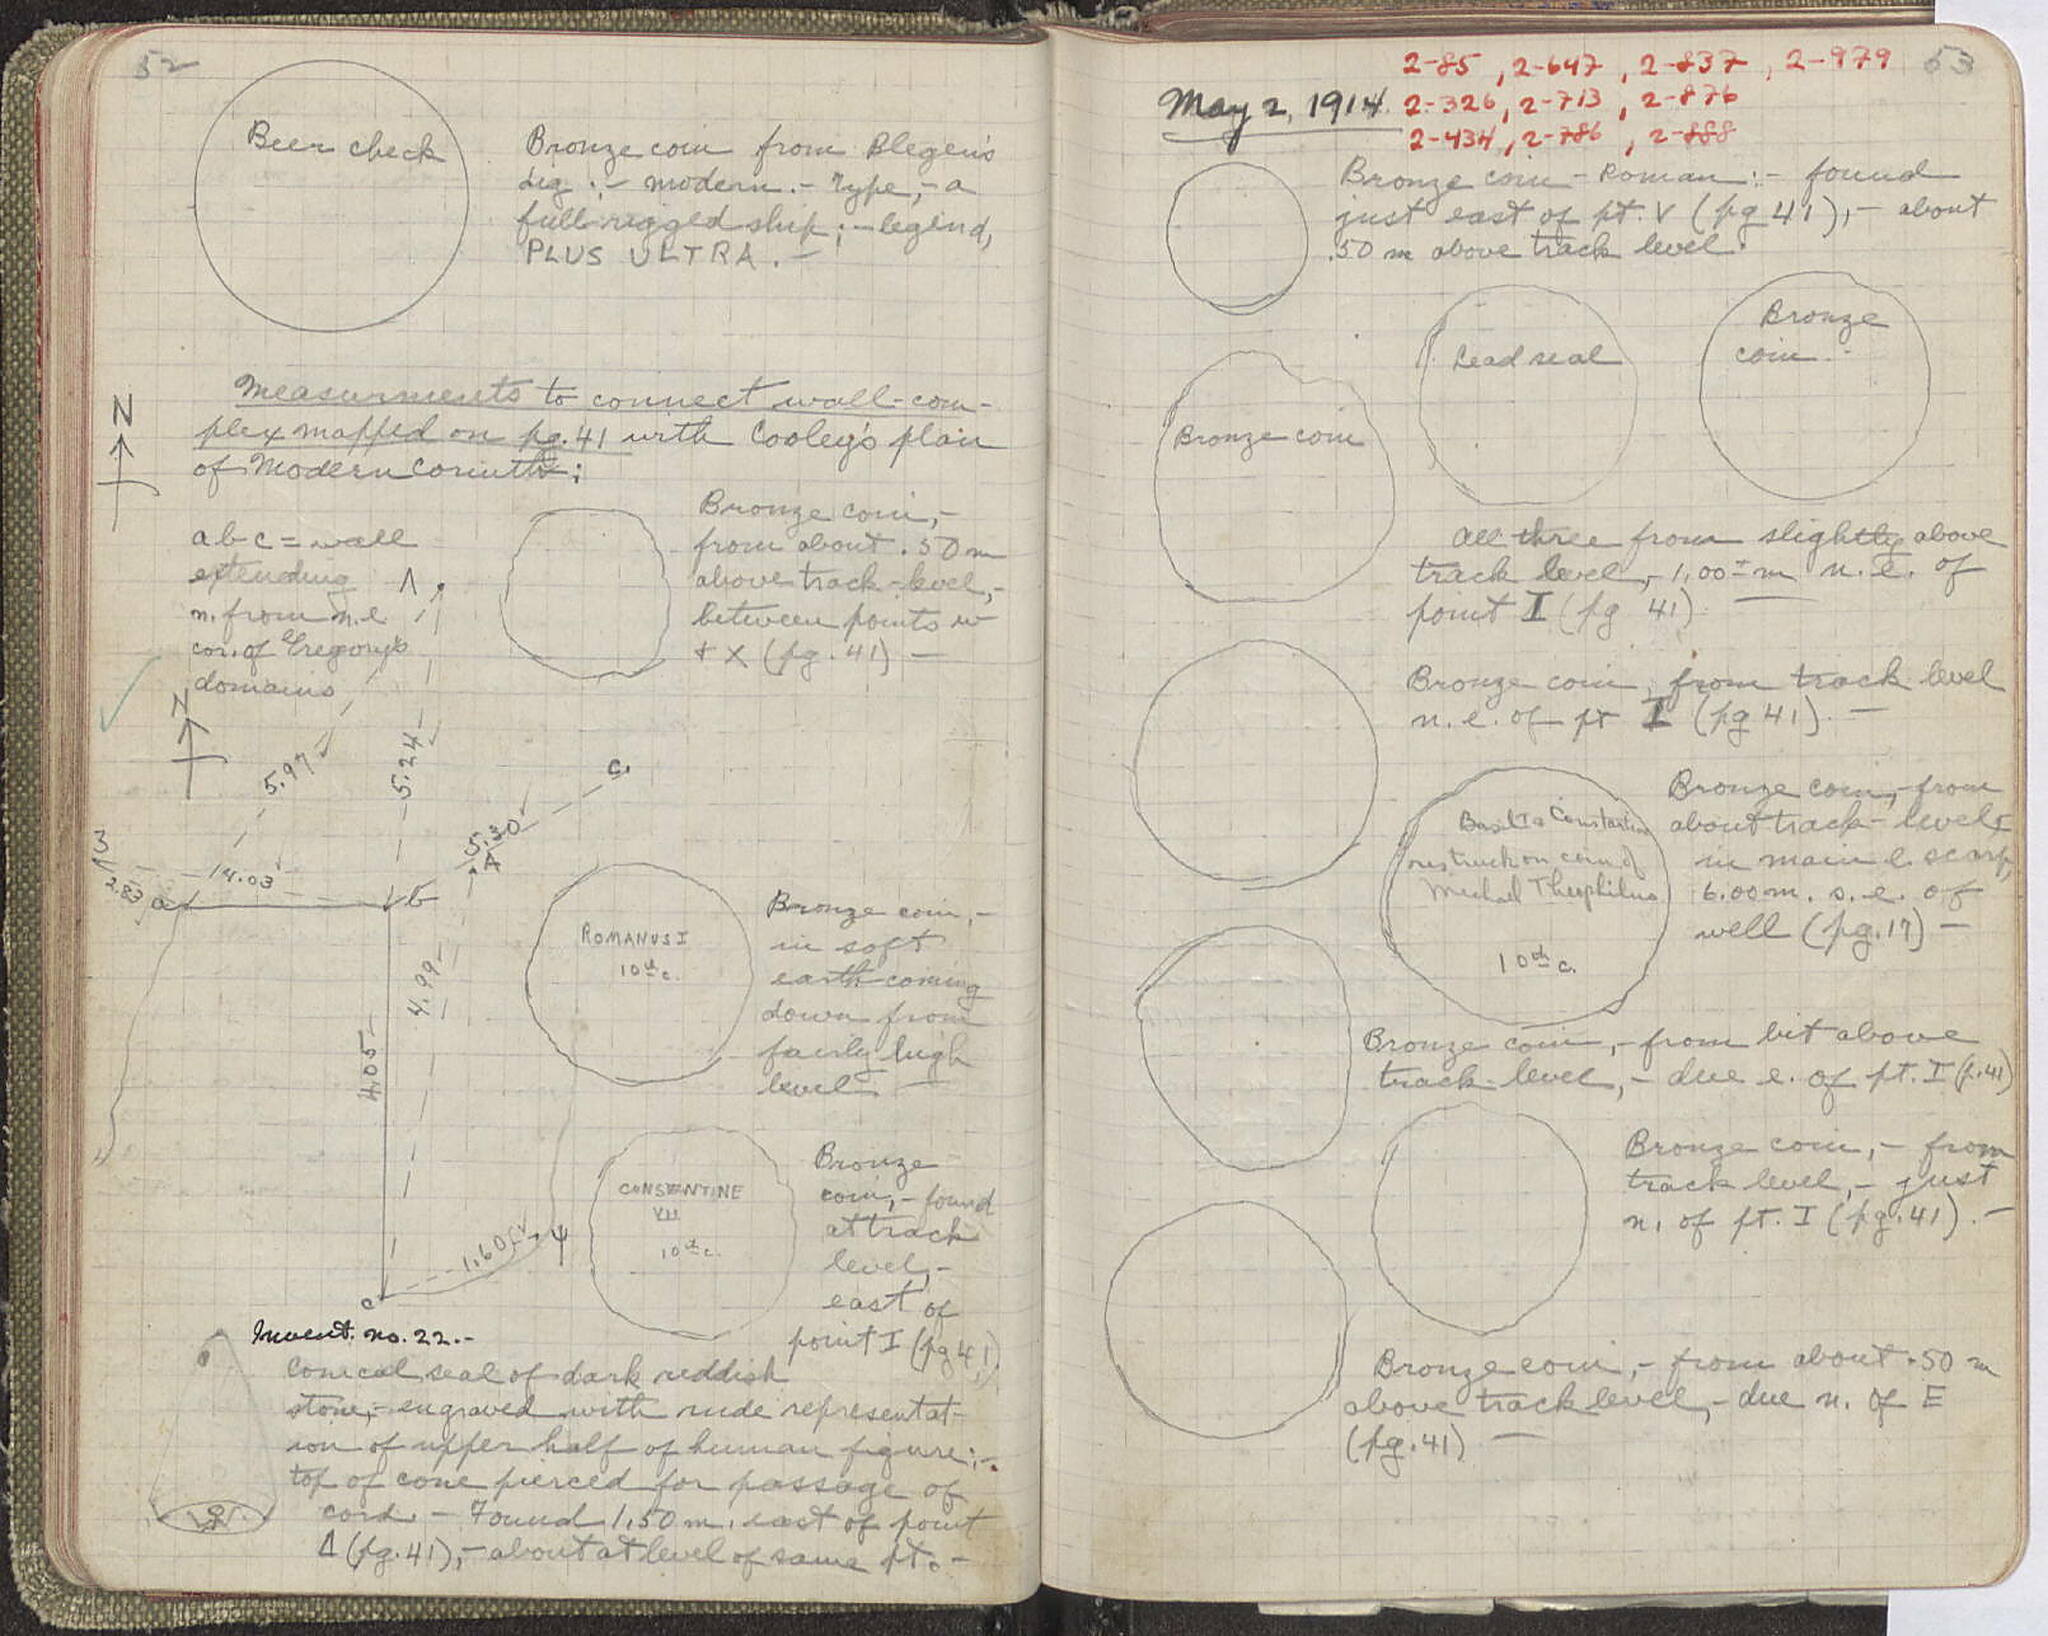 52
Beer check
Bronze coin from Blegen's
dig :- modern.- Type,- a
full-rigged ship ;- legend,
PLUS ULTRA. -
Measurments to connect wall-com-
plex mapped on pg. 41 with Cooley's plan
of Modern Corinth:
N
abc = wall
extending
n. from n.e.
cor. of Gregory's
domains
N
Λ
Bronze coin,-
from about .50 m
above track-level,-
between points w
+ X (pg. 41) -
5.97
5.24
5.30
c.
A
3
2.83
a
14.03
b
4.99
4.05
1.60
ψ
c
ROMANUS I
10th c.
Bronze coin,-
in soft
earth coming
down from
fairly high
level -
CONSTANTINE
VII
10th c.
Bronze
coin,- found
at track
level,-
east of
point I (pg 41)
Invent. no. 22.-
Conical seal of dark reddish
stone,- engraved with rude representat-
ion of upper half of human figure;-
top of cone pierced for passage of
cord. - Found 1.50 m. east of point
Δ (pg. 41),- about at level of same pt. -
53
2-85 , 2-647 , 2-837 , 2-979
May 2, 1914. 2-326, 2-713 , 2-876
2-434, 2-786 , 2-888
Bronze coin - Roman :- found
just east of pt. V (pg 41),- about
.50 m above track level.
Bronze coin
Lead seal
Bronze
coin -
All three from slightly above
track level,- 1.00± m n.e. of
point I (pg 41) -
Bronze coin, from track level
n.e. of pt I (pg 41). -
Basil I & Constantine
restruck on coin of
Michael Theophilus
10th c.
Bronze coin,- from
about track-level
in main e. scarp,
6.00 m. s.e. of
well (pg. 17) -
Bronze coin,- from bit above
track-level,- due e. of pt. I (p. 41)
Bronze coin,- from
track level,- just
n. of pt. I (pg. 41). -
Bronze coin,- from about .50 m
above track level,- due n. of E
(pg. 41) -